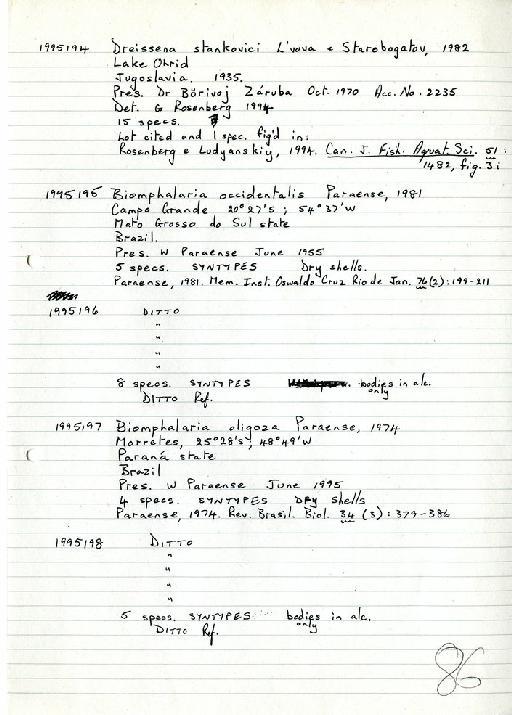 1995194 Dreissena stankovici L'vova & Starobogatov, 1982
Lake Ohrid
Jugoslavia. 1935.
Pres. Dr Bōrivoj Záruba Oct. 1970 Acc. No. 2235
Det. G Rosenberg 1994
15 specs.
Lot cited and 1 spec. fig'd in:
Rosenberg & Ludyanskiy, 1994. Can. J. Fish. Aquat. Sci. 51:
1482, fig. 3i
1995195 Biomphalaria occidentalis Paraense, 1981
Campo Grande 20°27'S; 54°37'W
Mato Grosso do Sul state
Brazil.
Pres. W Paraense June 1955
5 specs. SYNTYPES Dry shells.
Paraense, 1981. Mem. Inst. Oswaldo Cruz Rio de Jan. 76(2):199-211
1995196 DITTO
"
"
"
"
8 specs. SYNTYPES bodies in alc.
only
DITTO Ref.
1995197 Biomphalaria oligoza Paraense, 1974
Morretes, 25°28's; 48°49'W
Paraná state
Brazil
Pres. W Paraense June 1995
4 specs. SYNTYPES DRY shells
Paraense, 1974. Rev. Brasil. Biol. 34 (3): 379-386
1995198 DITTO
"
"
"
"
5 specs. SYNTYPES bodies in alc.
only
DITTO Ref.
86